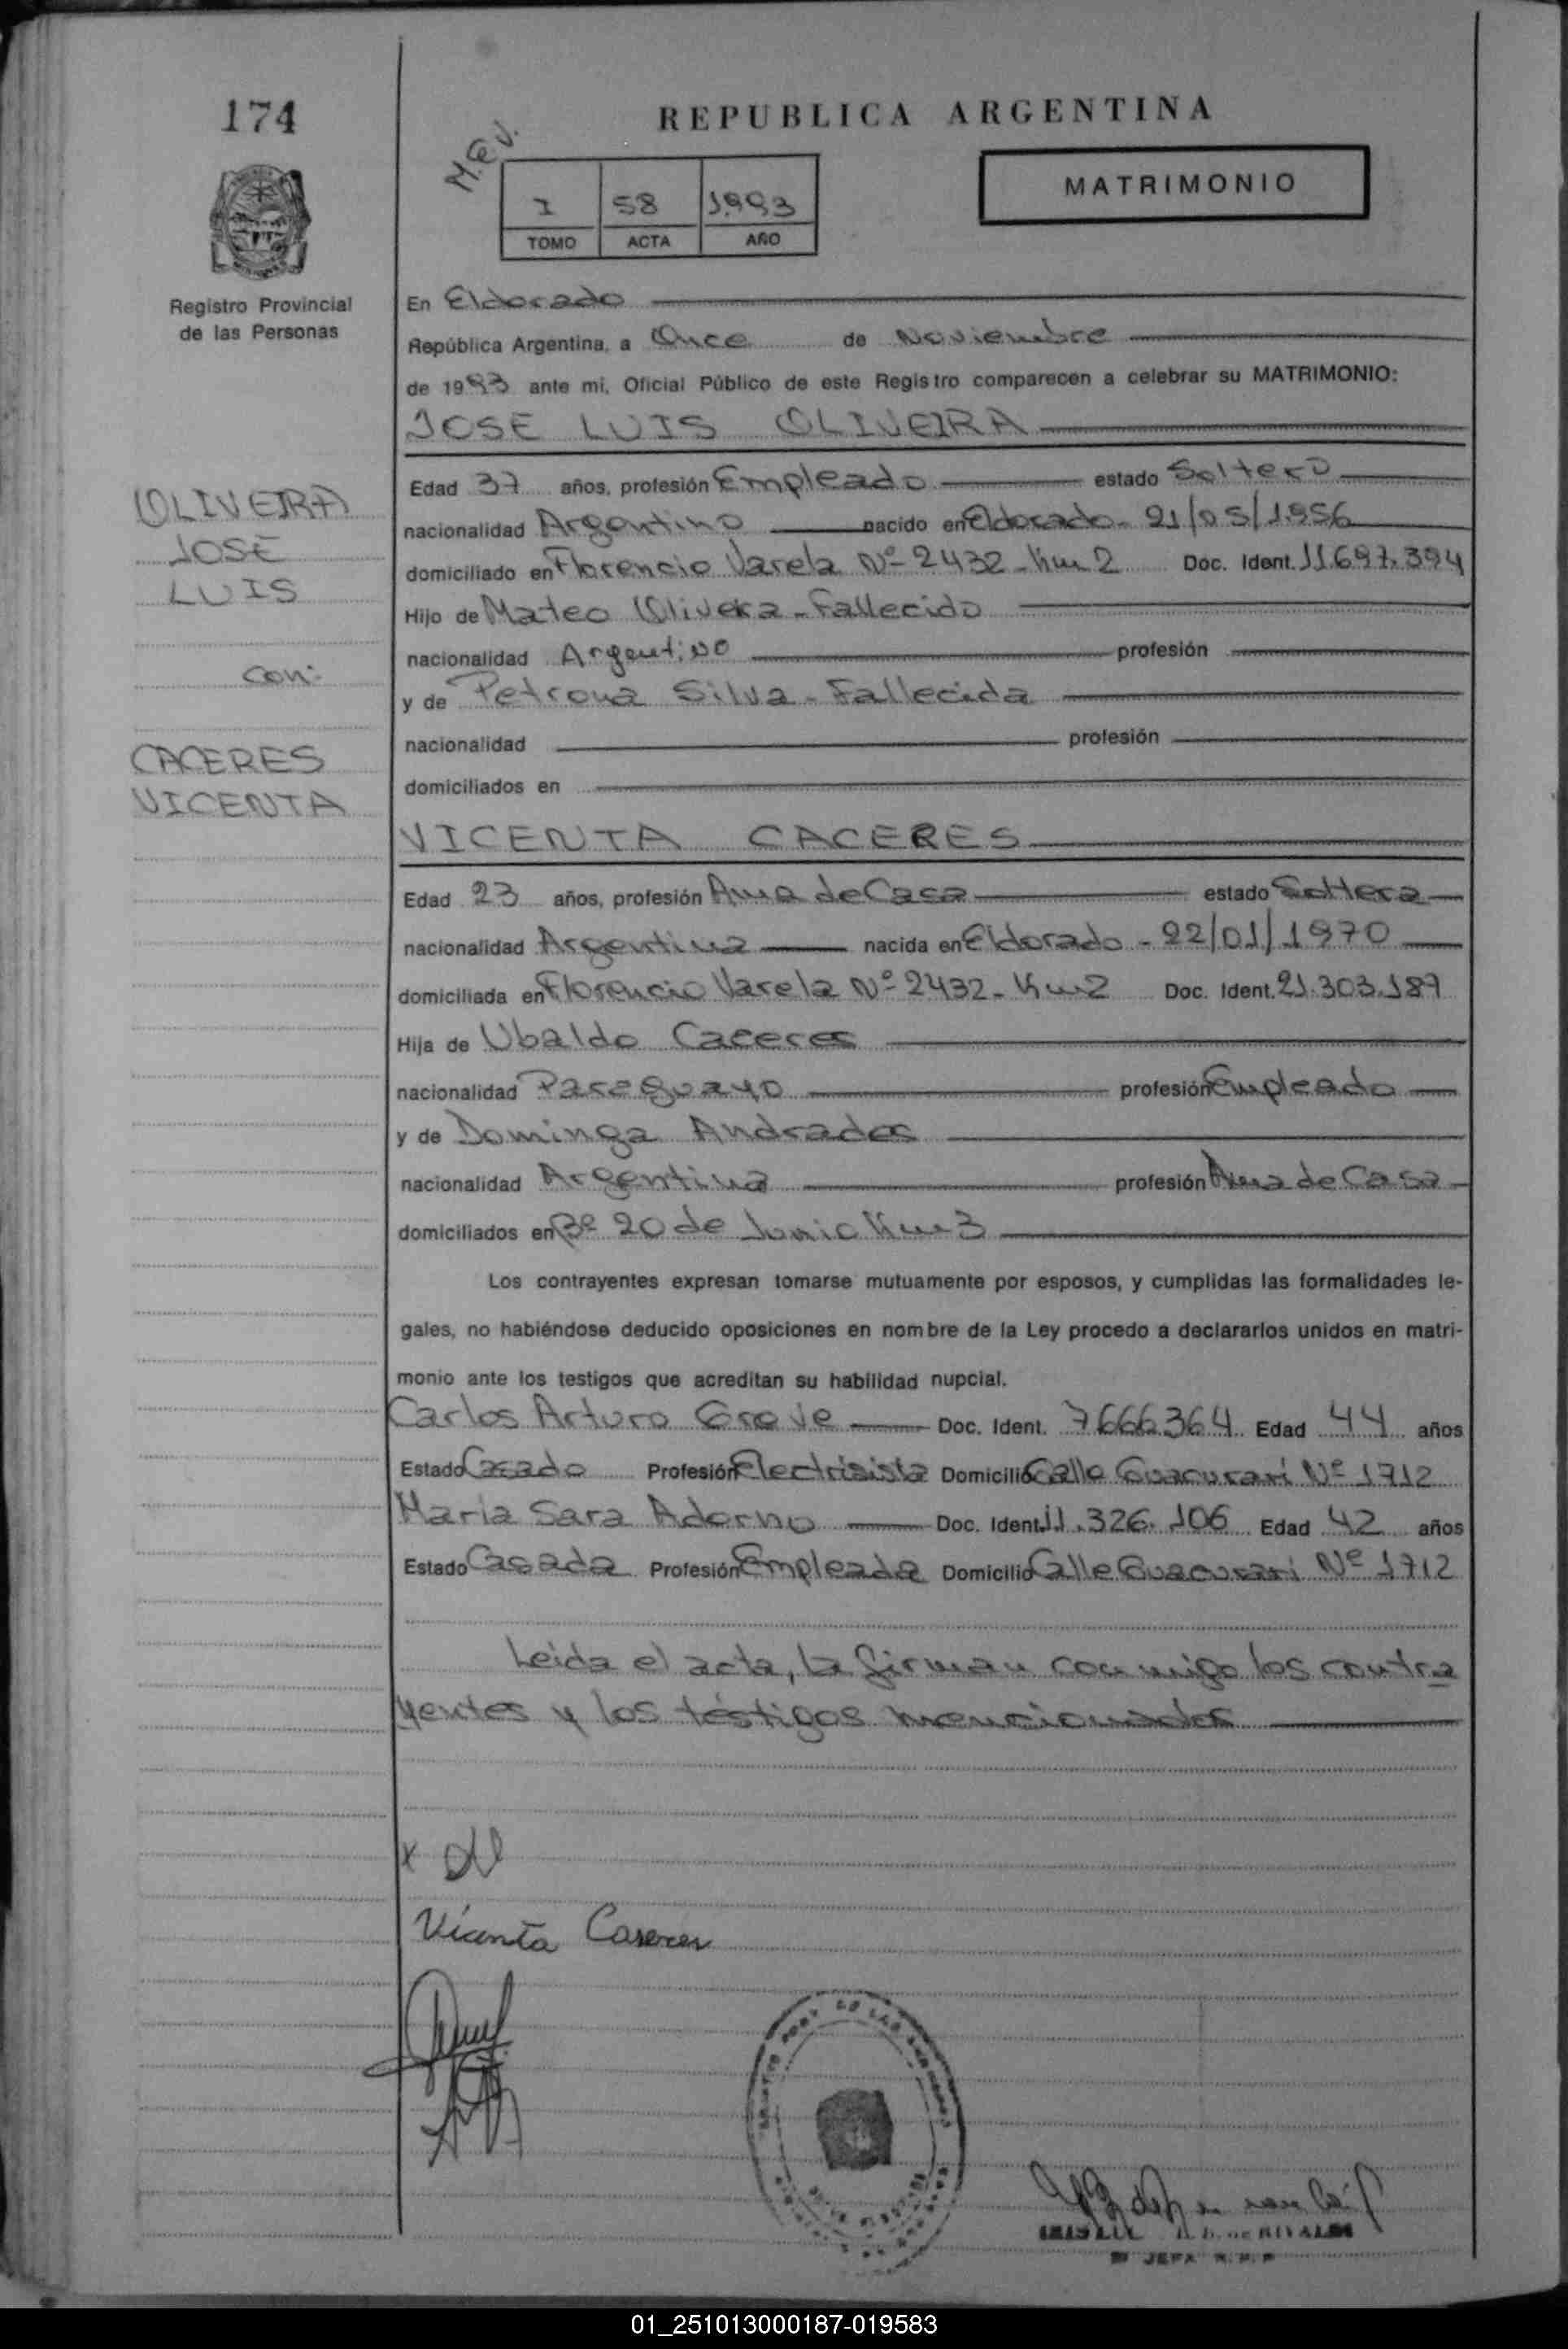 174
REPUBLICA ARGENTINA
M.E.V.
MATRIMONIO
I 58 1993
TOMO ACTA AÑO
Registro Provincial
de las Personas
En Eldorado
República Argentina, a Once de Noviembre
de 1993 ante mi, Oficial Público de este Registro comparecen a celebrar su MATRIMONIO:
JOSE LUIS OLIVEIRA
OLIVEIRA
JOSE
LUIS
con:
CACERES
VICENTA
Edad 37 años, profesión Empleado estado Soltero
nacionalidad Argentino nacido en Eldorado - 21/05/1956
domiciliado en Florencio Varela Nº 2432 - Km 2 Doc. Ident. 11.697.394
Hijo de Mateo Olivera - Fallecido
nacionalidad Argentino profesión
y de Petrona Silva - Fallecida
nacionalidad profesión
domiciliados en
VICENTA CACERES
Edad 23 años, profesión Ama de Casa estado Soltera
nacionalidad Argentina nacida en Eldorado - 22/01/1970
domiciliada en Florencio Varela Nº 2432 - Km 2 Doc. Ident. 21.303.187
Hija de Ubaldo Caceres
nacionalidad Paraguayo profesión Empleado
y de Dominga Andrades
nacionalidad Argentina profesión Ama de Casa
domiciliados en Bº 20 de Junio Km 3
Los contrayentes expresan tomarse mutuamente por esposos, y cumplidas las formalidades le-
gales, no habiéndose deducido oposiciones en nombre de la Ley procedo a declararlos unidos en matri-
monio ante los testigos que acreditan su habilidad nupcial.
Carlos Arturo Greve Doc. Ident. 7.666.364 Edad 44 años
Estado Casado Profesión Electrisista Domicilio Calle Guacurari Nº 1712
Maria Sara Adorno Doc. Ident. 11.326.106 Edad 42 años
Estado Casada Profesión Empleada Domicilio Calle Guacurari Nº 1712
Leida el acta, la firman con migo los contra
yentes y los testigos mencionados
x
Vicenta Caseres
JEFA
01_251013000187-019583